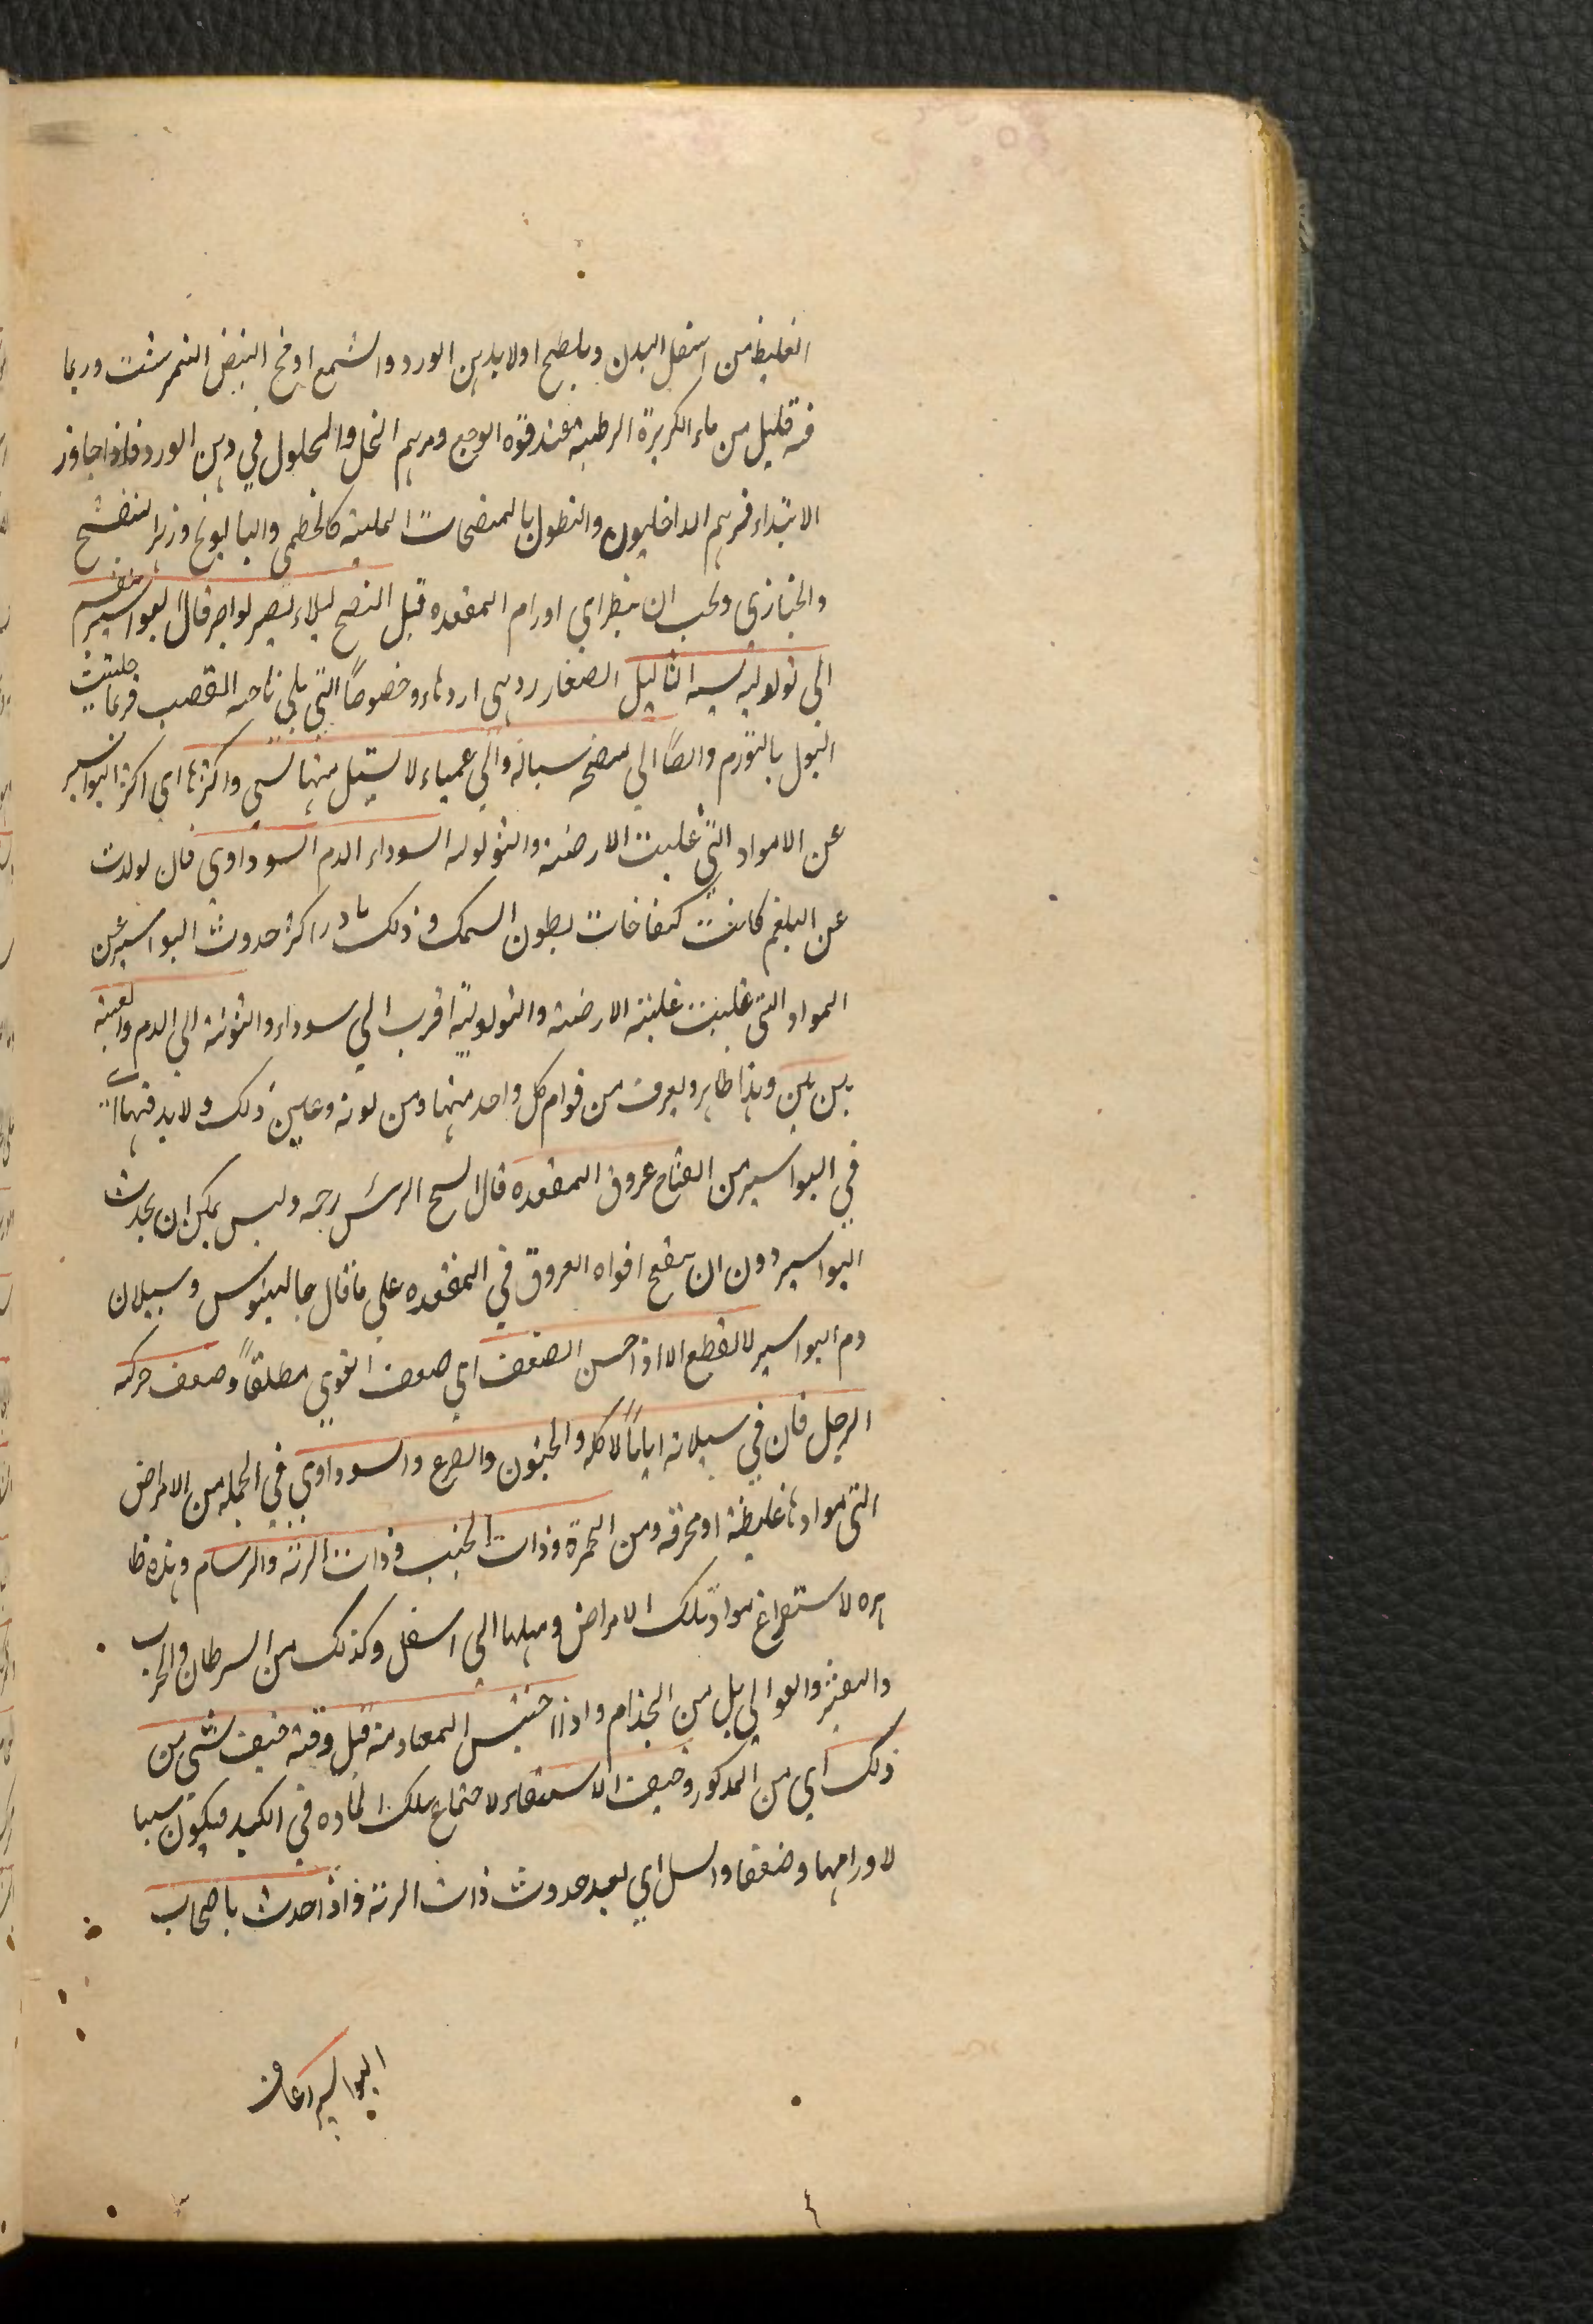 الغليظ من اسفل البدن ويلطخ اولا بدهن الورد والشمع او مخ البيض النمرشت وربما
فيه قليل من ماء الكزبرة الرطبة عند قوة الوجع ومرهم النخل والمحلول في دهن الورد فاذا جاوز
الابتداء فمرهم الداخليون والنطول بالمنضجات الملينه كالخطمى والبابونج وزهر البنفسج
والخبازى ويجب ان يبط اي اورام المقعده قبل النضج ليلا يصير نواصر قال البواسير ينقسم
الى ثولوليه يشبه الثاليل الصغار وهى اردىها وخصوصاً التي يلي ناحيه القصب فربما جلبت
البول بالتورم وايضاً الي منفتحه سياله والي عمياء لا يسيل منها شي واكثرها اي اكثر البواسير
عن الامواد التي غلبت الارضية والثولوليه السوداء الدم السوداوي فان تولدت
عن البلغم كانت كنفاخات بطون السمك وذلك نادر اكثر حدوث البواسير عن
المواد التي غلبت غلبته الارضية والثولولية اقرب الي سوداء والتوتة الي الدم والعنبية
بين بين وهذا ظاهر ويعرف من قوام كل واحد منها ومن لونه وعلمن ذلك ولا بد فيها اي
في البواسير من انفتاح عروق المقعده قال الشيخ الرئس رحمه وليس يمكن ان يحدث
البواسير دون ان ينفتح افواه العروق في المقعده على ما قال جالينوس وسيلان
دم البواسير لا يقطع الا اذا حسن الضعف اي ضعف القوي مطلقاً وضعف حركه
الرجل فان في سيلانه اماناً لاكله والجنون والصرع والسوداوي في الجمله من الامراض
التي موادها غليظة او محرقه ومن الحمرة وذات الجنب وذات الرئة والسرسام وهذه ظا
هره لاستفراغ مواد تلك الامراض وميلها الي اسفل وكذلك من السرطان والجرب
والتقشر والقوابي بل من الجذام واذا احتبس المعاد منه قبل وقته خيف شي من
ذلك اي من المذكور وخيف الاستسقاء لاجتماع تلك المادة في الكبد فيكون سببا
لاورامها وضعفها والسل اي بعد حدوث ذات الرئة واذا حدث باصحاب
البواسير رعاف